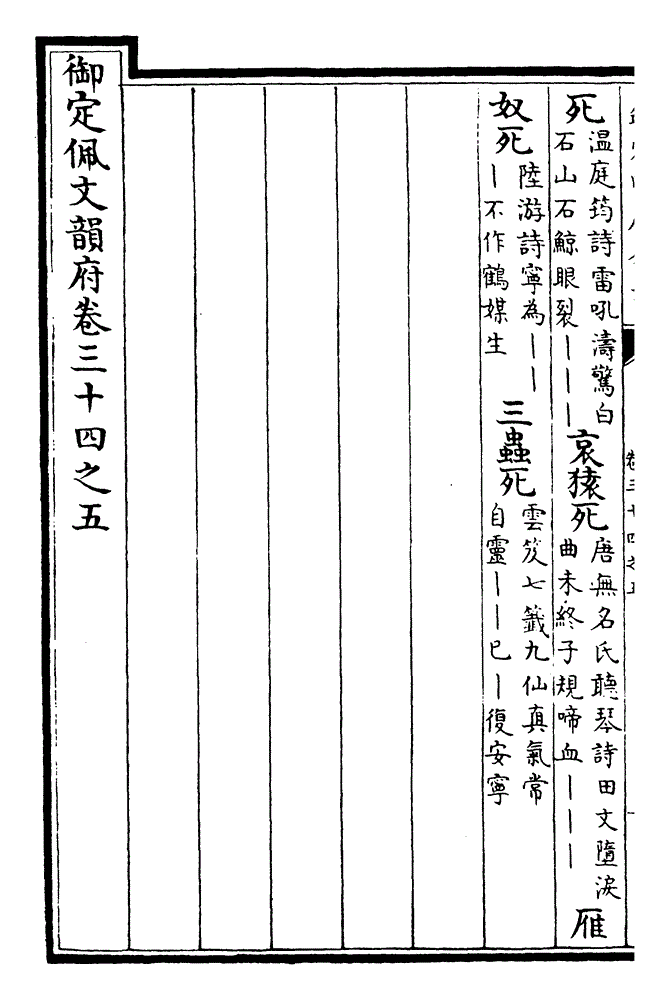 死 温庭筠詩雷吼濤驚白
石山石鯨眼裂｜｜｜
哀猿死 唐無名氏聽琴詩田文墮淚
曲未終子規啼血｜｜｜
雁
奴死 陸游詩寧為｜｜
｜不作鶴媒生
三蟲死 雲笈七籤九仙真氣常
自靈｜｜已｜復安寧
御定佩文韻府卷三十四之五
卷三十四之五